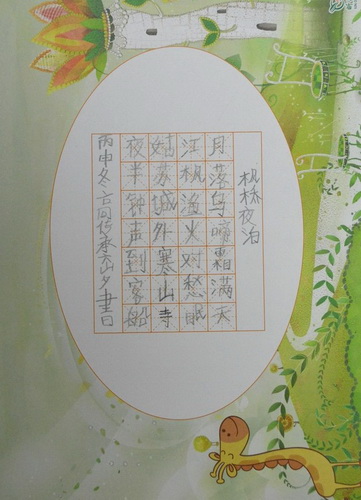 枫桥夜泊
月落乌啼霜满天
江枫渔火对愁眠
姑苏城外寒山寺
夜半钟声到客船
丙申冬